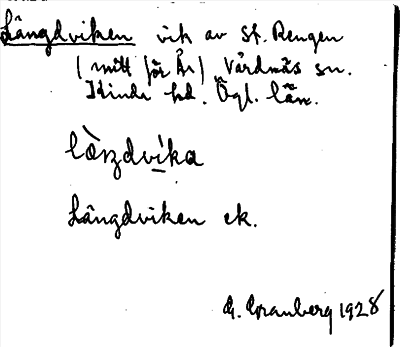 Långdviken vik av St. Rengen
(mitt för Å) Vårdnäs sn.
Kinda hd. Ögl. län.
Långdviken ek.
G. Granberg 1928